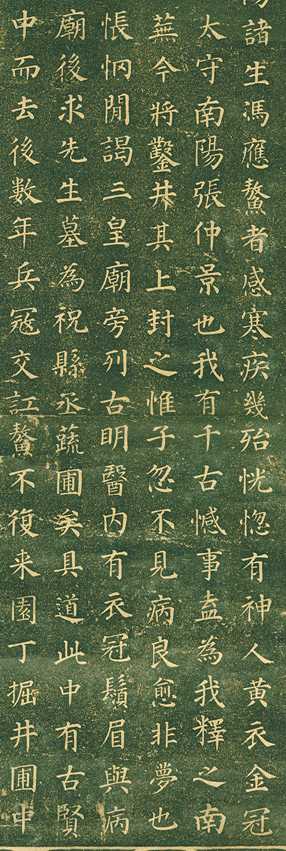 諸生馮應鰲者感寒疾幾殆恍惚有神人黃衣金冠
太守南陽張仲景也我有千古憾事盍為我釋之南
蕪今將鑿井其上封之惟子忽不見病良愈非夢也
悵惘閒謁三皇廟旁列古明醫內有衣冠鬚眉與病
廟後求先生墓為祝縣丞蔬圃矣具道此中有古賢
中而去後數年兵寇交訌鰲不復来園丁掘井圃中